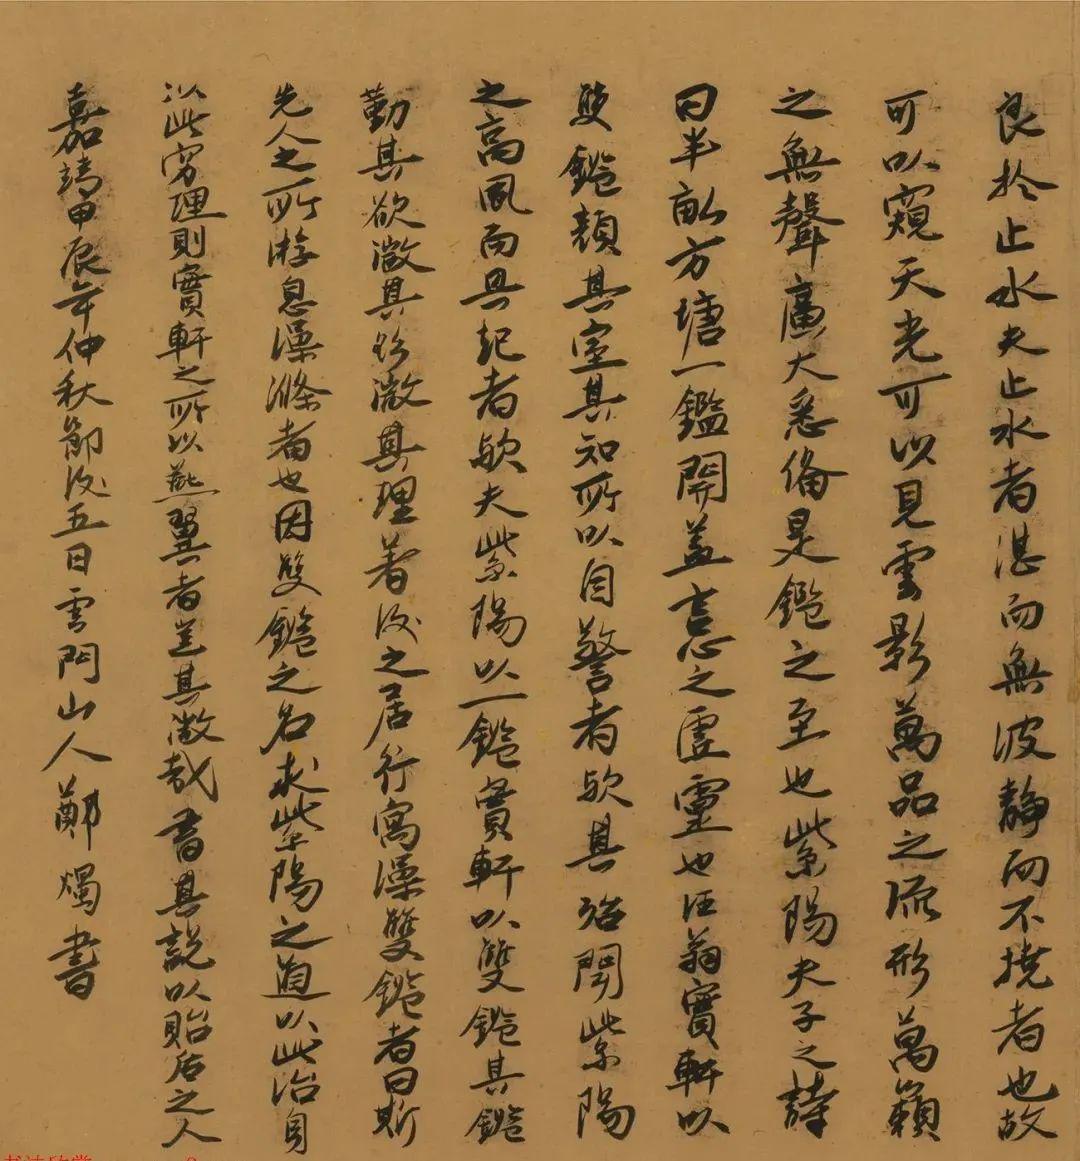 良於止水夫止水者湛而無波靜而不撓者也故
可以窺天光可以見雲影萬品之流形萬籟
之無聲廣大悉備是鑑之至也紫陽夫子之詩
曰半畝方塘一鑑開蓋言心之虛靈也汪翁實軒以
雙鑑顏其室其知所以自警者歟其殆聞紫陽
之高風而具起者歟夫紫陽以一鑑實軒以雙鑑其鑑
勤其欲澂其訟澂其理著後之居行寓澡雙鑑者曰斯
先人之所游息澡滌者也因雙鑑之名求紫陽之道以此治身
以此窮理則實軒之所以燕翼者豈其微哉書其說以貽后之人
嘉靖甲辰年仲秋節後五日雲門山人鄭燭書